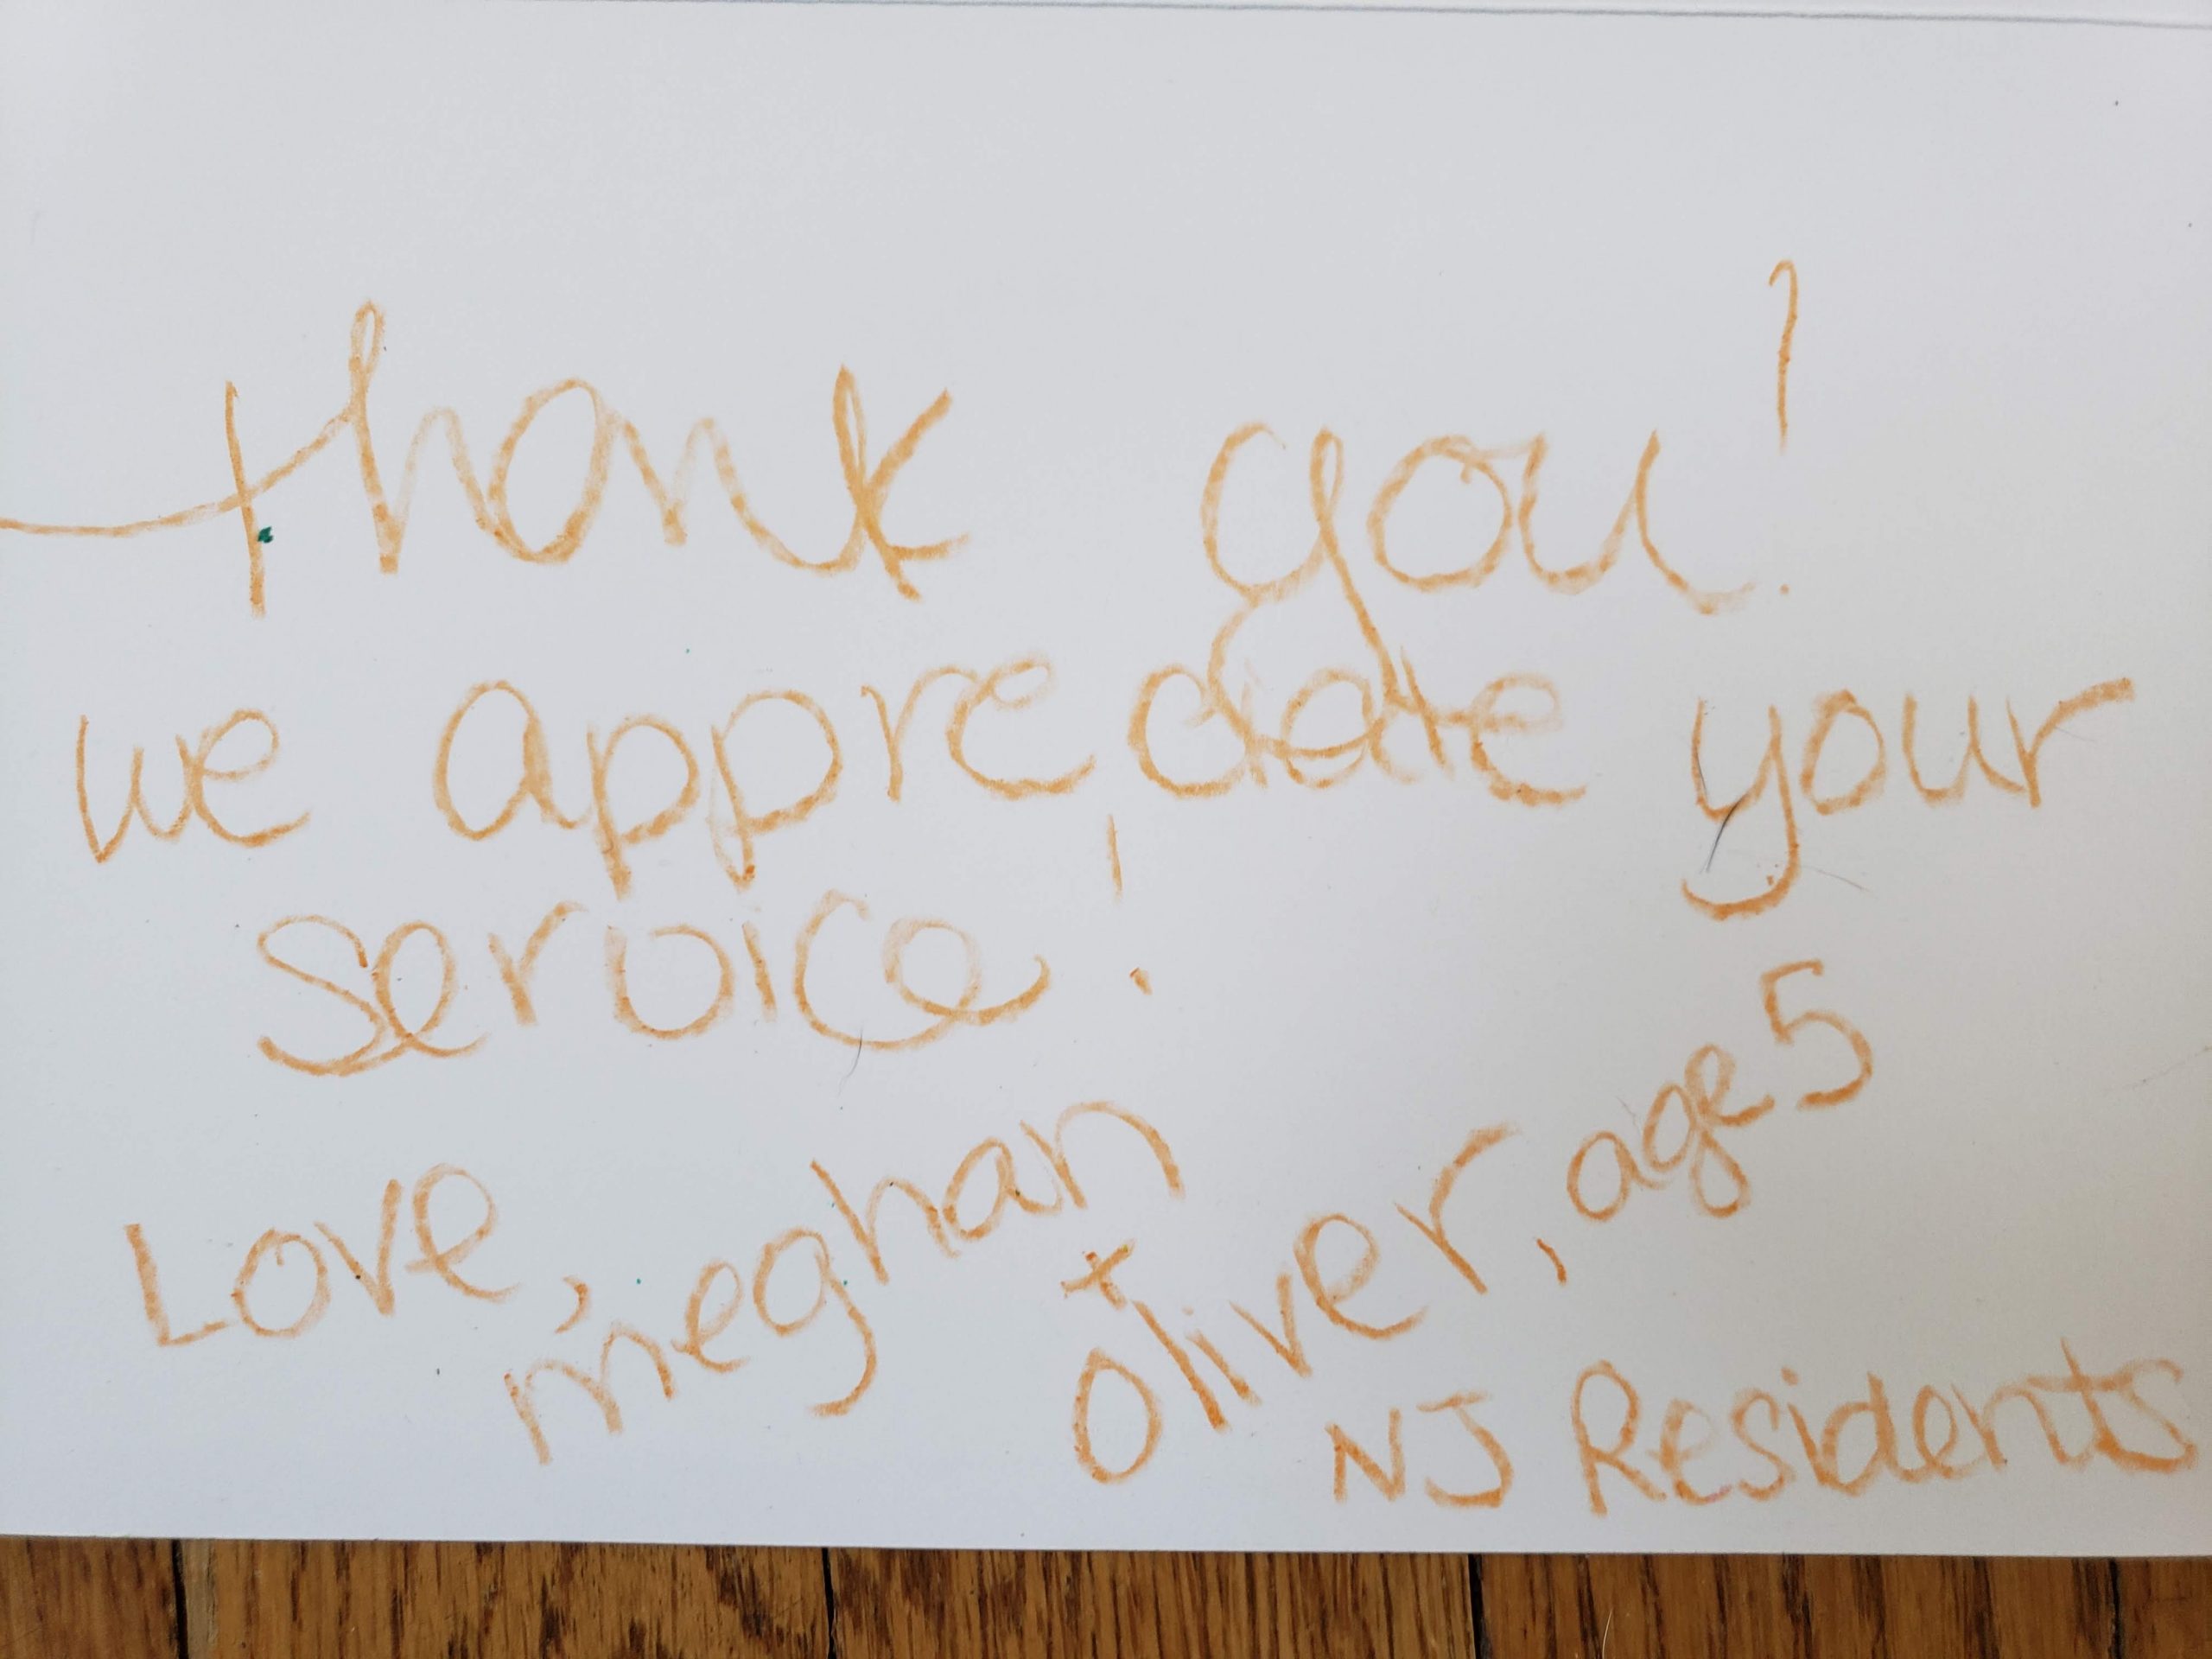 thank you!
we appreciate your
service!
Love,
meghan
+
oliver, age 5
NJ Residents